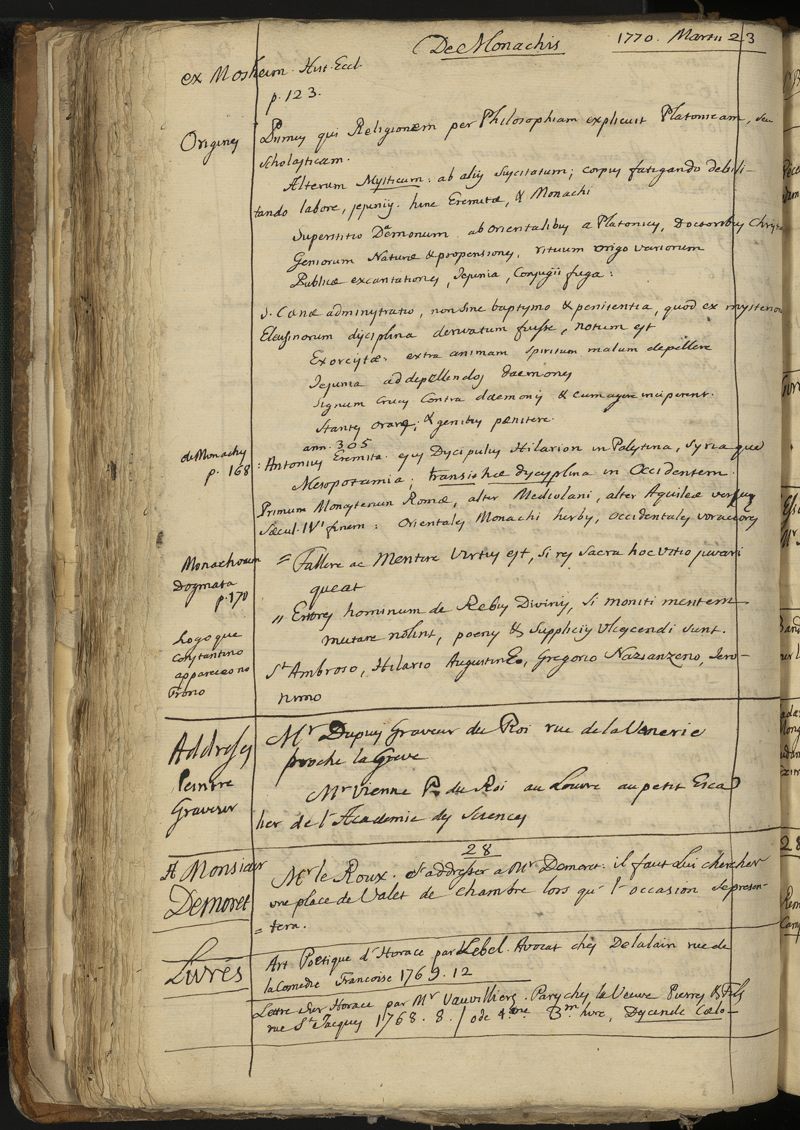 De Monachis 1770. Martii 23
ex Mosheim. Hist. Eccl.
p. 123.
Origines Primus qui Religionem per Philosophiam explicuit Platonicam, seu
Scholasticam.
Alterum Mysticum: ab aliis suscitatum; corpus fatigando debili-
tando labore, jejuniis. hinc Eremitæ, & Monachi
Superstitio Dæmonum ab orientalibus a Platonicis, Doctoribus Christ
Geniorum Naturæ & propensiones, rituum origo variorum
Publicæ excantationes, Jejunia, Conjugii fuga:
S. Cænæ administratio, non sine baptismo & penitentia, quod ex mysteriorum
Eleusinorum disciplina derivatum fuisse, notum est
Exorcistæ: extra animam spiritum malum depellere
Jejunia ad depellendos daemones
Signum Crucis Contra daemonis & cum agere inciperent.
Stantes orare; & genibus penitere.
ann. 305
de Monachis
p. 168
: Antonius Eremita. ejus Discipulus Hilarion in Palestina, Syria que
Mesopotamia; transiit hæc disciplina in Occidentem.
Primum Monasterium Romæ, alter Mediolani, alter Aquileæ versus
Sæcul. IVi finem: Orientales Monachi herbis, occidentales voraciores
Monachorum
Dogmata
p. 170
= Fallere ac Mentire Virtus est, si res sacra hoc vitio juvari
queat
" Errores hominum de Rebus Divinis, si moniti mentem
mutare nolint, poenis & suppliciis ulciscendi sunt.
Logo que
Constantino
appareceo no
Trono
St Ambroso, Hilario Augustino, Gregorio Nazianzeno, Jero-
nimo
Addresses
Peintre
Graveur
Mr Dupuis Graveur du Roi rue de la Vanerie
proche la Greve
Mr Vienne P. du Roi au Louvre au petit Esca
lier de l'Academie des Sciences
28
A Monsieur
Demoret
Mr le Roux. S'addresser a Mr Demoret. il faut lui chercher
une place de Valet de chambre lors qu'l'occasion se presen-
= tera.
Livres
Art Poetique d'Horace par Lebel Avocat ches Delalain rue de
la Comedie Francoise 1769. 12
Lettre sur Horace par Mr Vauvilliers. Paris ches la Veuve Pierres & Fils
rue St Jacques 1768. 8. / ode 4me 3me livre, Descende Cœlo-